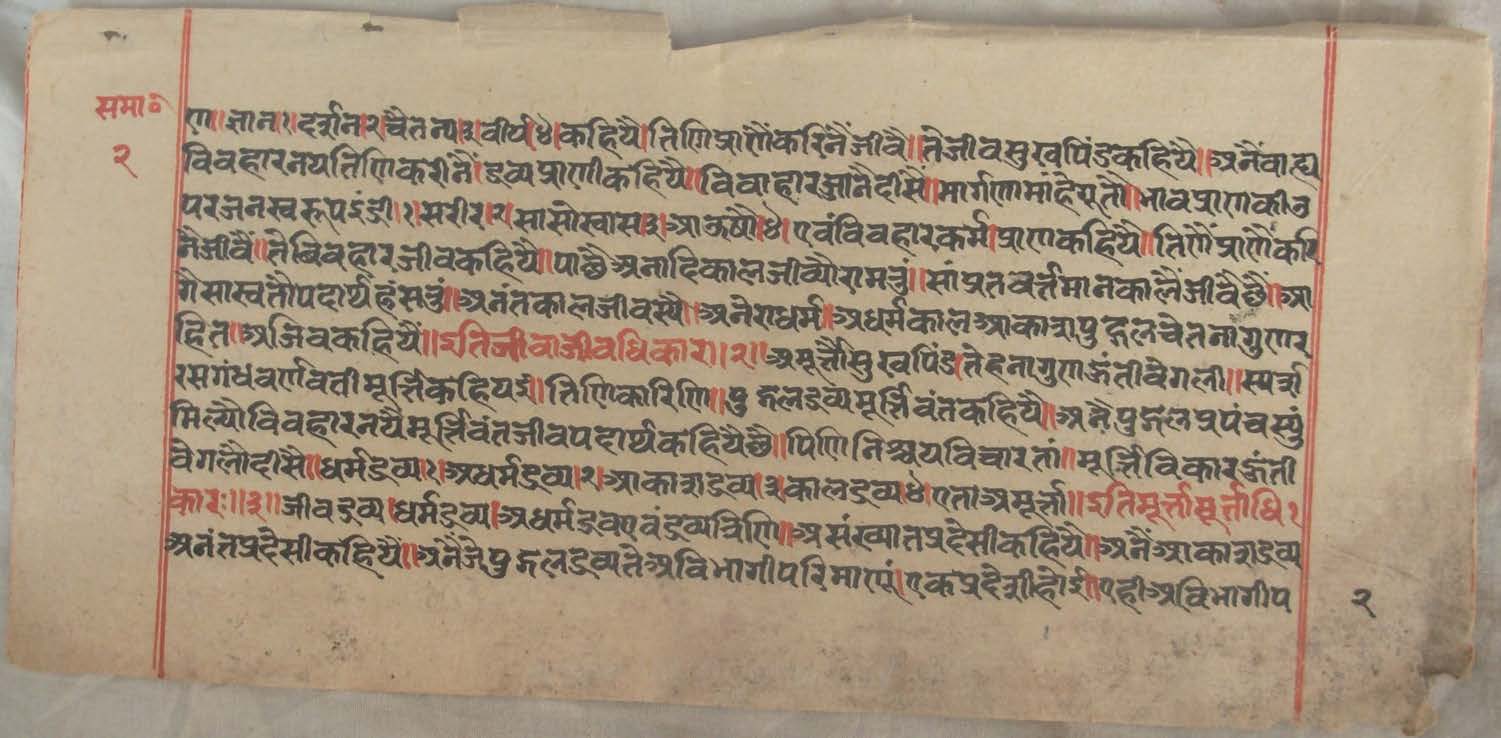 समा॰
२
ण॥ज्ञान१दर्शन।२चैतन्य।३।वीर्य।४।कहियै।तिणिप्राणैंकरिनैंजीवै॥तेजीवसुखपिंडकहियै॥अनैंवाह्य
विवहारनयतिणिकरीनैं।द्रव्यप्राणीकहियै॥विवाहारआनैदीसैं॥मार्गणामांहै॥भावप्राणकीउ
परजनस्वरूपइंद्री।१।सरीर।२।सासोस्वास।३।आऊषौ।४।एवंविवहारकर्म।प्राणकहियै॥तिणैंप्राणैंकरि
नैजीवैं॥तेविवहारजीवकहियै॥पाछैअनादिकालजीव्यौ॥सांप्रतवर्त्तमानकालैंजीवैछैं॥आ
गैसास्वतौपदार्थहं॥अनंतकालजीवस्यै॥अनेराधर्म॥अधर्मकालआकाशपुद्गलचेतनागुणर
हित॥अजिवकहियैं॥इतिजीवाजीवधिकार।२॥अमूर्त्तौसुखपिंड।तेहनागुणऊंतीवेगली॥स्पर्श
रसगंधवर्णवतीमूर्त्तिकहियइं॥तिणिकारिणि॥पुद्गलद्रव्यमूर्त्तिवंतकहियै॥अनैपुद्गलप्रपंचस्युं
मिल्यौविवहारनयैमूर्त्तिवंतजीवपदार्थकहियैछै॥पिणिनिश्चयविचारतां॥मूर्त्तिविकारऊंती
वेगलौदीसै॥धर्मद्रव्य।१।अधर्मद्रव्य।२।आकाशद्रव्य।३।कालद्रव्य।४।एताअमूर्त्ता॥इतिमूर्त्तामूर्त्ताधि१
कारः॥३॥जीवद्रव्य।धर्मद्रव्य।अधर्मद्रवएवंद्रव्यत्रिणि॥असंख्यातप्रदेसीकहियै॥अनैंआकाशद्रव्य
अनंतप्रदैसीकहियैं॥अनैंजेपुद्गलद्रव्यतेअविभागीपरिमाणूं।एकप्रदैशीहोई।एहीअविभागीप
२